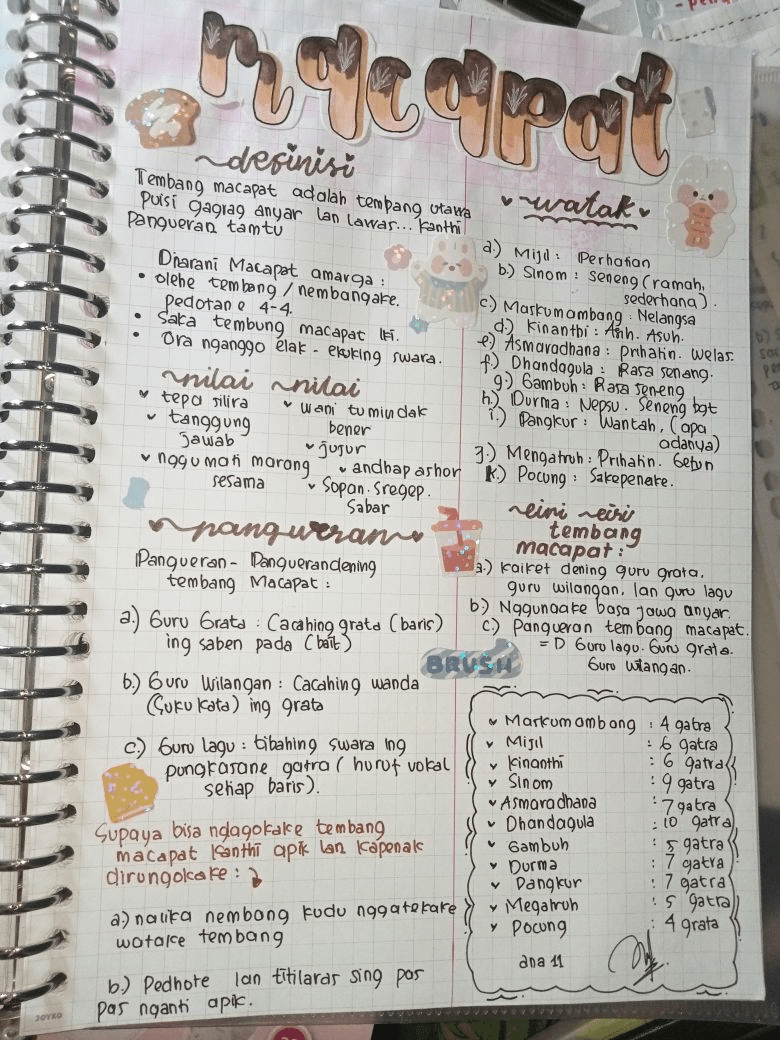 macapat
definisi
Tembang macapat adalah tembang utawa
puisi gagrag anyar lan lawas... kanthi
pangueran tamtu
Diarani Macapat amarga :
• olehe tembang / nembangake.
pedotane 4-4.
• Saka tembung macapat iki.
• Ora nganggo elak - elaking swara.
nilai nilai
tepa slira
tanggung
jawab
nggumati marang
sesama
wani tumindak
bener
jujur
andhap ashor
Sopan. Sregep.
Sabar
pangueran
Pangueran - Panguerandening
tembang Macapat :
a.) Guru Grata : Cacahing grata (baris)
ing saben pada (bait)
b.) Guru Wilangan : Cacahing wanda
(Suku kata) ing grata
c.) Guru lagu : tibahing swara ing
pungkasane gatra ( huruf vokal
setiap baris).
Supaya bisa nglagokake tembang
macapat kanthi apik lan kapenak
dirungokake :
a.) nalika nembang kudu nggatekake
watake tembang
b.) Pedhote lan titilaras sing pas
pas nganti apik.
JOYKO
watak
a.) Mijil : Perhatian
b.) Sinom : seneng (ramah,
sederhana).
c.) Maskumambang : Nelangsa
d.) Kinanthi : Asih. Asuh.
e.) Asmaradhana : prihatin. Welas.
f.) Dhandagula : Rasa senang.
g.) Gambuh : Rasa seneng
h.) Durma : Nepsu. Seneng bgt
i.) Pangkur : Wantah, (apa
adanya)
j.) Mengatruh : Prihatin. Getun
k.) Pocung : Sakepenake.
ciri ciri
tembang
macapat :
a.) kaiket dening guru grata,
guru wilangan, lan guru lagu
b.) Nggunaake basa jawa anyar.
c.) Pangueran tembang macapat.
= D Guru lagu. Guru grata.
Guru wilangan.
BRUSH
Maskumambang : 4 gatra
Mijil : 6 gatra
Kinanthi : 6 gatra
Sinom : 9 gatra
Asmaradhana : 7 gatra
Dhandagula : 10 gatra
Gambuh : 5 gatra
Durma : 7 gatra
Pangkur : 7 gatra
Megatruh : 5 gatra
Pocung : 4 grata
ana 11